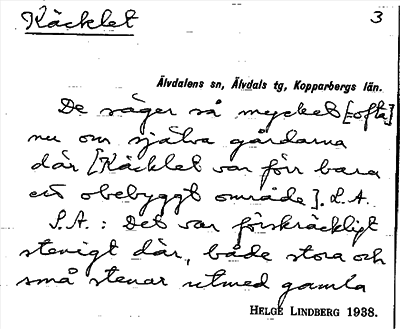 Käcklet 3
Älvdalens sn, Älvdals tg, Kopparbergs län.
De säger så mycket [=ofta]
nu om själva gårdarna
där [Käcklet var förr bara
ett obebyggt område]. L.A.
S.A.: Det var förskräckligt
stenigt där, både stora och
små stenar utmed gamla
HELGE LINDBERG 1938.